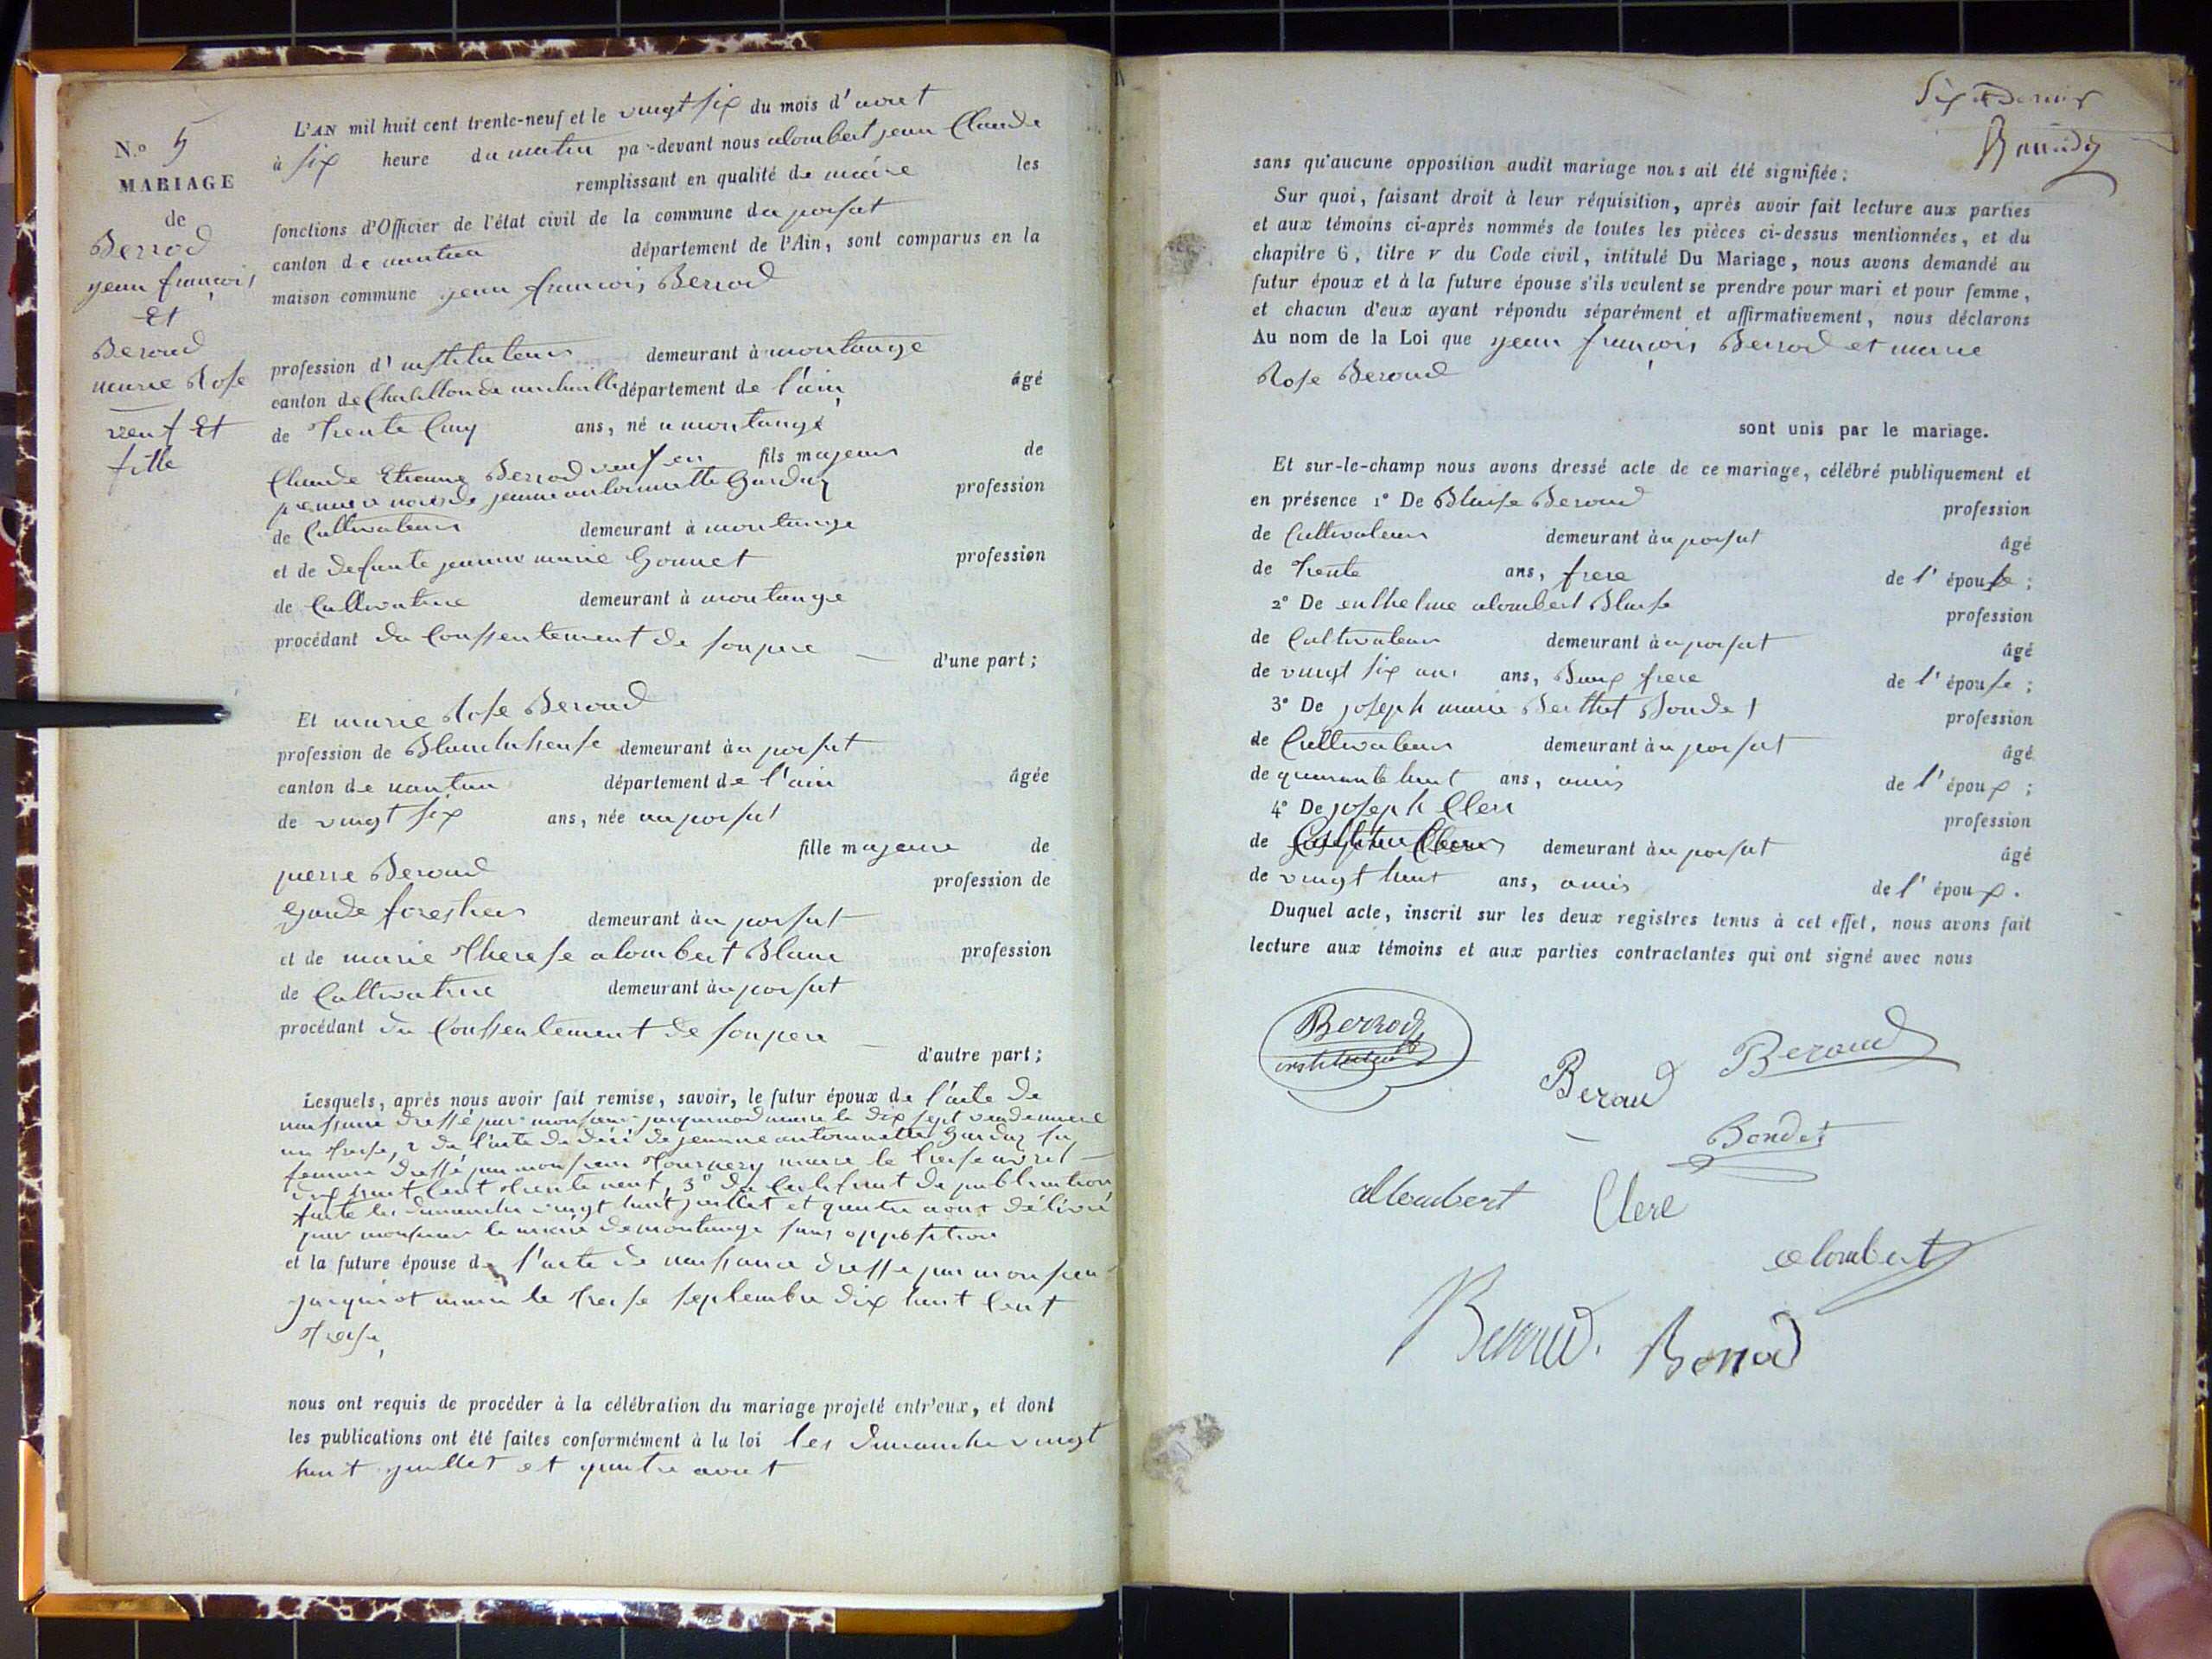 N.° 5
MARIAGE
de
Berrod
jean françois
Et
Beroud
marie Rose
veuf Et
fille
L'AN mil huit cent trente-neuf et le vingt six du mois d'aout
à six heure du matin par-devant nous alombert jean Claude
remplissant en qualité de maire les
fonctions d'Officier de l'état civil de la commune du poisat
canton de nantua département de l'Ain, sont comparus en la
maison commune jean françois Berrod
profession d'instituteur demeurant à montange
canton de Chatillon de michaille département de l'ain âgé
de trente cinq ans, né a montange
fils majeur de
Claude Etienne Berrod veuf en
premiere noces de jeanne antoinette Gardaz profession
de Cultivateur demeurant à montange
et de defunte jeanne marie Gonnet profession
de Cultivatrice demeurant à montange
procédant du Conssentement de son pere — d'une part;
Et marie Rose Beroud
profession de Blanchisseuse demeurant au poisat
canton de nantua département de l'ain âgée
de vingt six ans, née au poisat
fille majeure de
pierre Beroud profession de
Garde forestier demeurant au poisat
et de marie therese alombert Blanc profession
de Cultivatrice demeurant au poisat
procédant du Conssentement de son pere — d'autre part;
Lesquels, après nous avoir fait remise, savoir, le futur époux de l'acte de
naissance dressé par monsieur jacquinod maire le dix sept vendemiere
an treise, 2 de l'acte de décé de jeanne antoinette Gardaz sa
femme dressé par monsieur maire le treise avril —
dix huit Cent trente neuf, 3° du Certificat de publication
faite les dimanche vingt huit juillet et quatre aout délivré
par monsieur le maire de montange sans opposition
et la future épouse de l'acte de naissance dresse par monsieur
jacquiot maire le treise septembre dix huit Cent
treise,
nous ont requis de procéder à la célébration du mariage projeté entr'eux, et dont
les publications ont été faites conformément à la loi les dimanche vingt
huit juillet et quatre aout
Six et dernier
sans qu'aucune opposition audit mariage nous ait été signifiée;
Sur quoi, faisant droit à leur réquisition, après avoir fait lecture aux parties
et aux témoins ci-après nommés de toutes les pièces ci-dessus mentionnées, et du
chapitre 6, titre v du Code civil, intitulé Du Mariage, nous avons demandé au
futur époux et à la future épouse s'ils veulent se prendre pour mari et pour femme,
et chacun d'eux ayant répondu séparément et affirmativement, nous déclarons
Au nom de la Loi que jean françois Berrod et marie
Rose Beroud
sont unis par le mariage.
Et sur-le-champ nous avons dressé acte de ce mariage, célébré publiquement et
en présence 1° De Blaise Beroud profession
de Cultivateur demeurant au poisat âgé
de trente ans, frere de l'épouse;
2° De enthelme alombert Blaise profession
de Cultivateur demeurant au poisat âgé
de vingt six ans ans, Baux frere de l'épouse;
3° De joseph marie Berthet Bondet profession
de Cultivateur demeurant au poisat âgé
de quarante huit ans, amis de l'époux;
4° De joseph Clerc profession
de demeurant au poisat âgé
de vingt huit ans, amis de l'époux.
Duquel acte, inscrit sur les deux registres tenus à cet effet, nous avons fait
lecture aux témoins et aux parties contractantes qui ont signé avec nous
Berrod
instituteur
Beroud
Beraud
Bondet
allombert
Clerc
alombert
Beroud.
Berrod